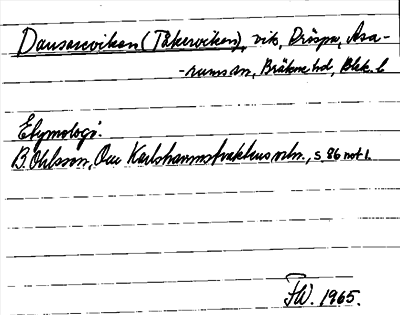 Dansareviken (Tåkerviken), vik, Dröspe, Asa-
-rums sn, Bräkne hd, Blek. l
Etymologi:
B. Ohlsson, Om Karlshamnstraktens ndn., s. 86 not 1.
FW. 1965.